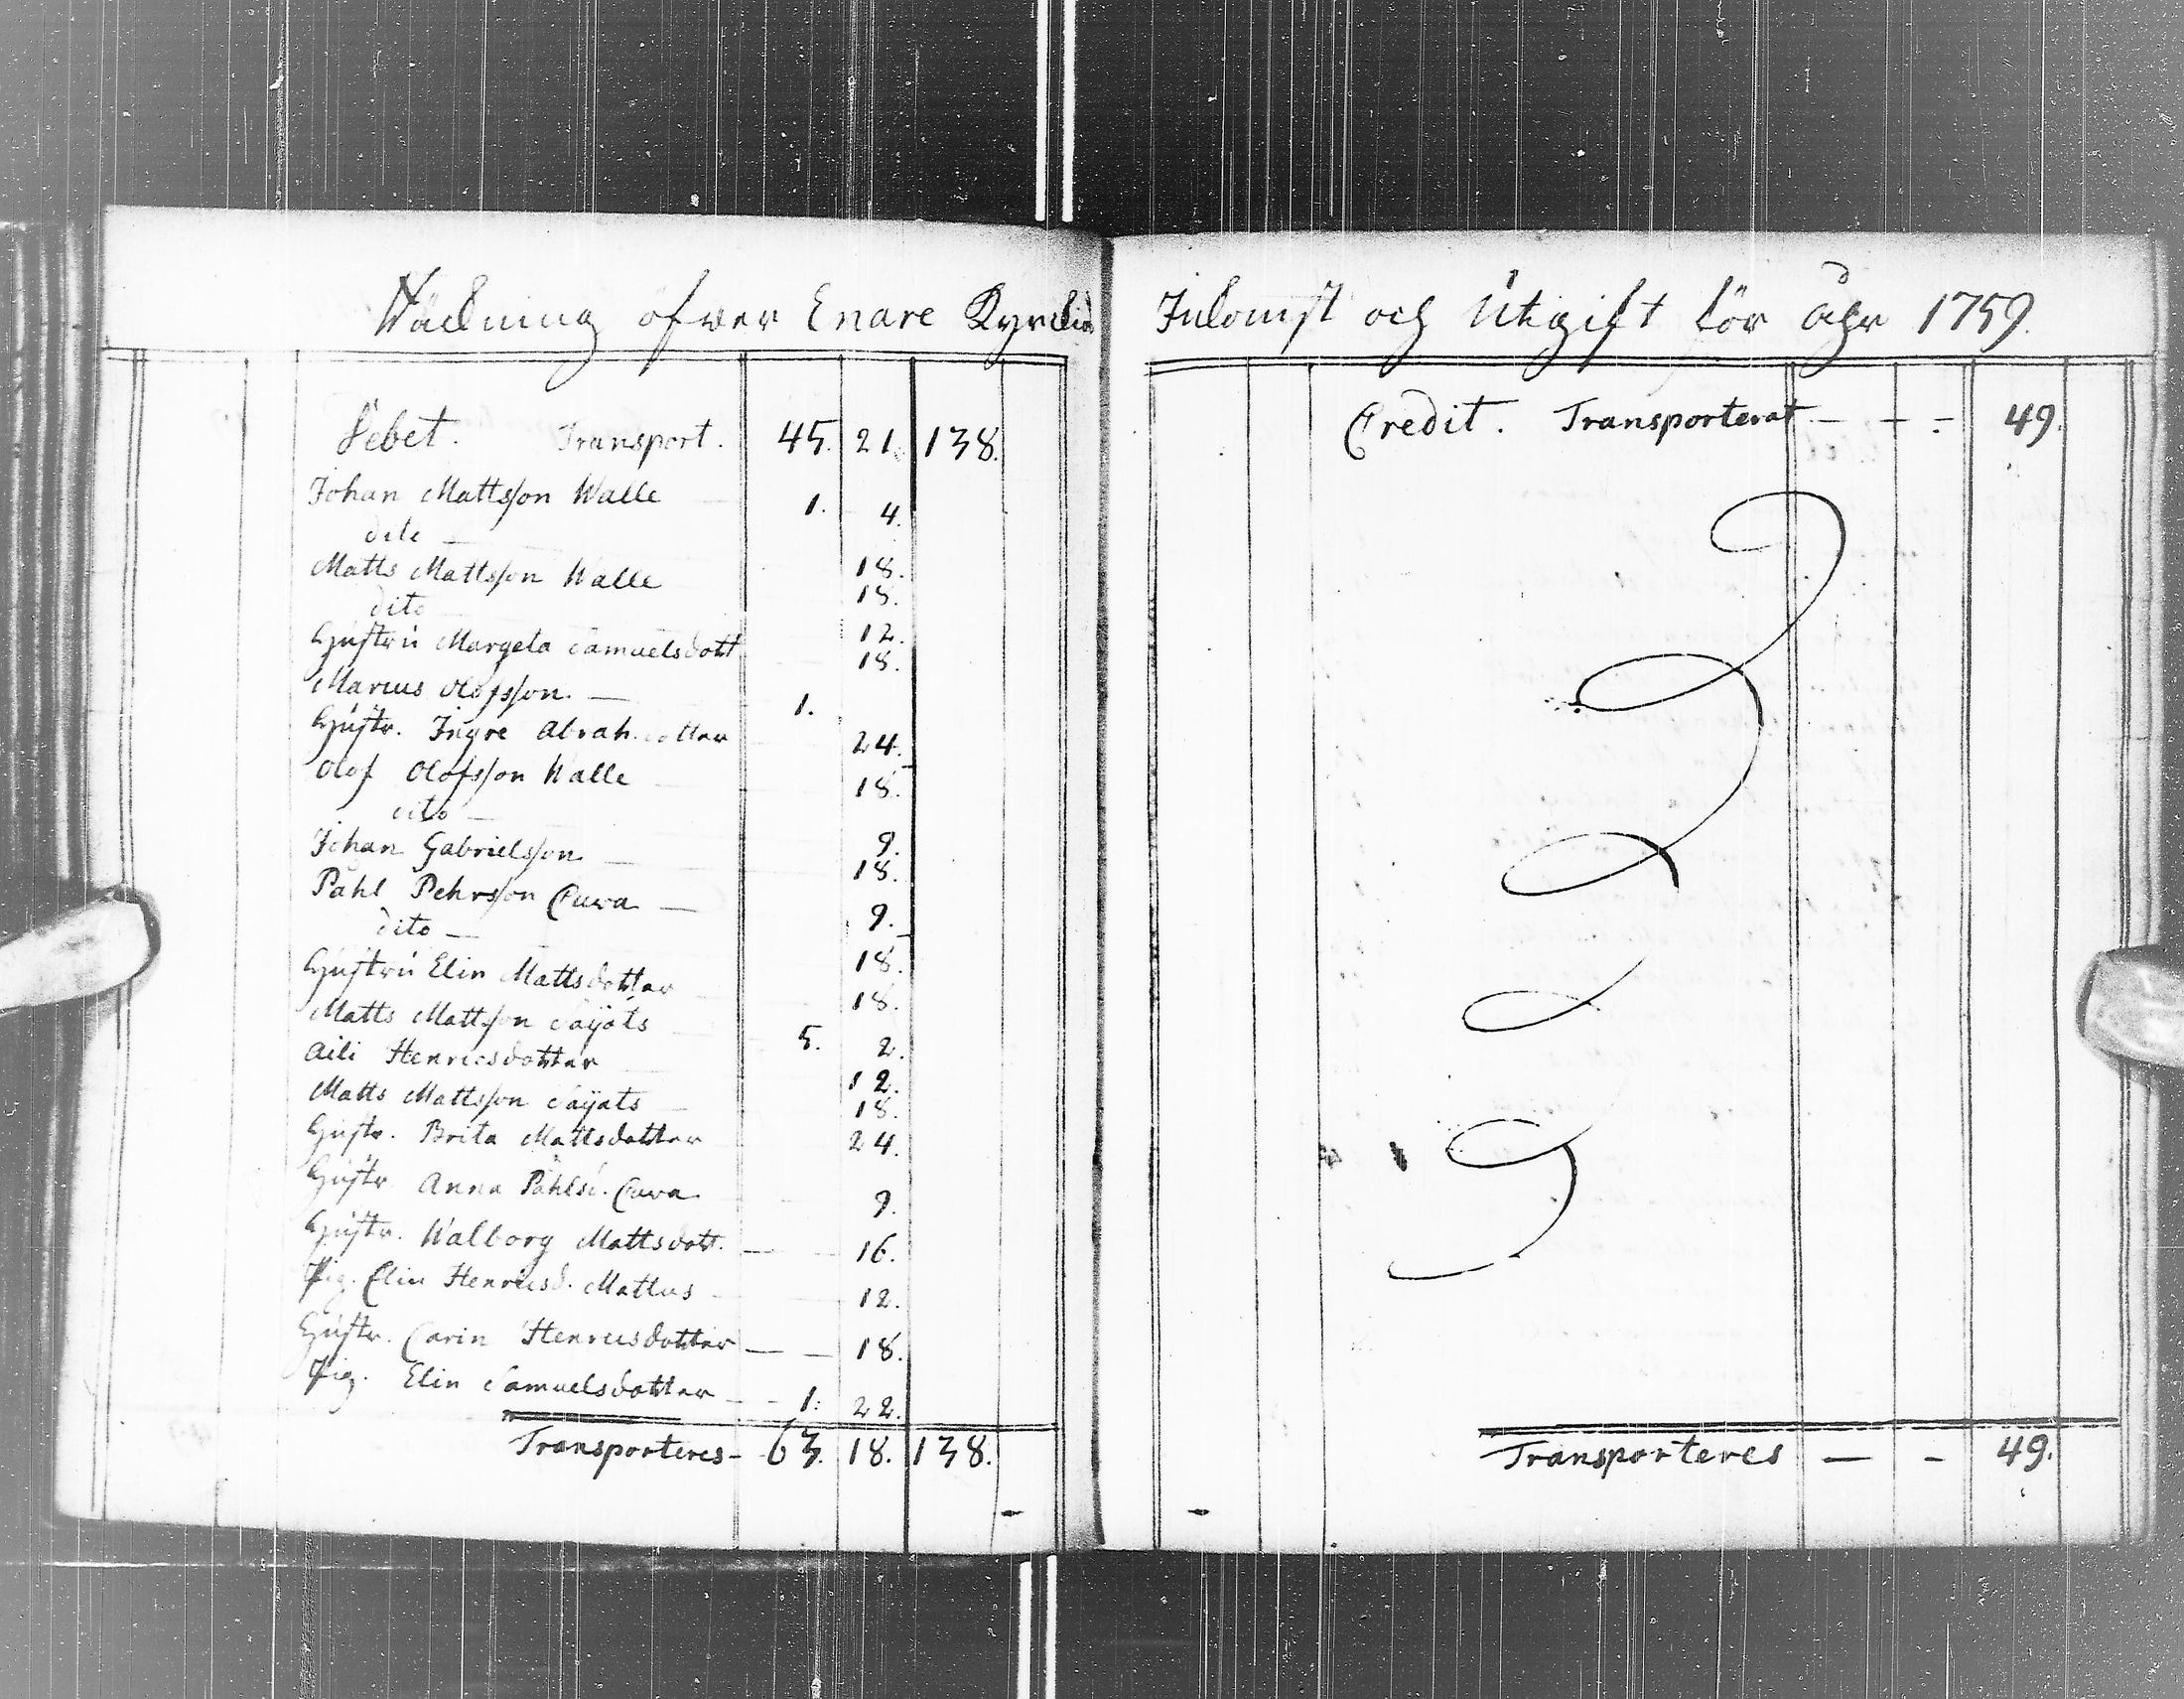 Räckning öfwer Enare Kyrckio
Debet. Transport. 45. 21. 138.
Johan Mattsson Walle 1. 4.
dito — 18.
Matts Mattsson Walle 18.
dito 12.
Hustru Margeta Samuelsdott 18.
Marcus Olofsson. — 1.
Hustr. Ingre Abrah. dotter 24.
Olof Olofsson Walle 18.
dito — 9.
Johan Gabrielsson — 18.
Påhl Pehrsson Cuwa — 9.
dito — 18.
Hustru Elin Mattsdotter 18.
Matts Mattsson Saijats 5. 2.
Aili Henricsdotter 12.
Matts Mattsson Saijats 18.
Hustr. Brita Mattsdotter 24.
Hustr. Anna Påhlsd. Cuwa 9.
Hustr. Walborg Mattsdott. — 16.
Pig. Elin Henricsd. Mattus 12.
Hustr. Carin Henricsdotter — — 18.
Pig. Elin Samuelsdotter — - 1: 22.
Transporteres - 63. 18. 138.
Inkomst och Utgift för åhr 1759.
Credit. Transporterat — - - 49.
Transporteres — - 49.